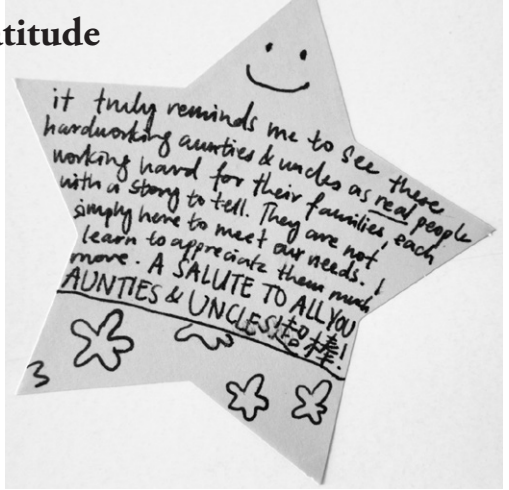 titude
it truly reminds me to see these
hardworking aunties & uncles as real people
working hard for their families, each
with a story to tell. They are not
simply here to meet our needs. I
learn to appreciate them much
more. A SALUTE TO ALL YOU
AUNTIES & UNCLES!超棒!
3